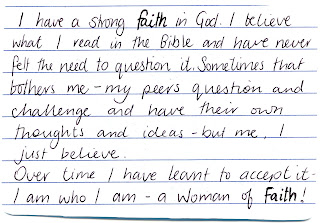 I have a strong faith in God. I believe
what I read in the Bible and have never
felt the need to question it. Sometimes that
bothers me - my peers question and
challenge and have their own
thoughts and ideas - but me, I
just believe.
Over time I have learnt to accept it -
I am who I am - a woman of faith!